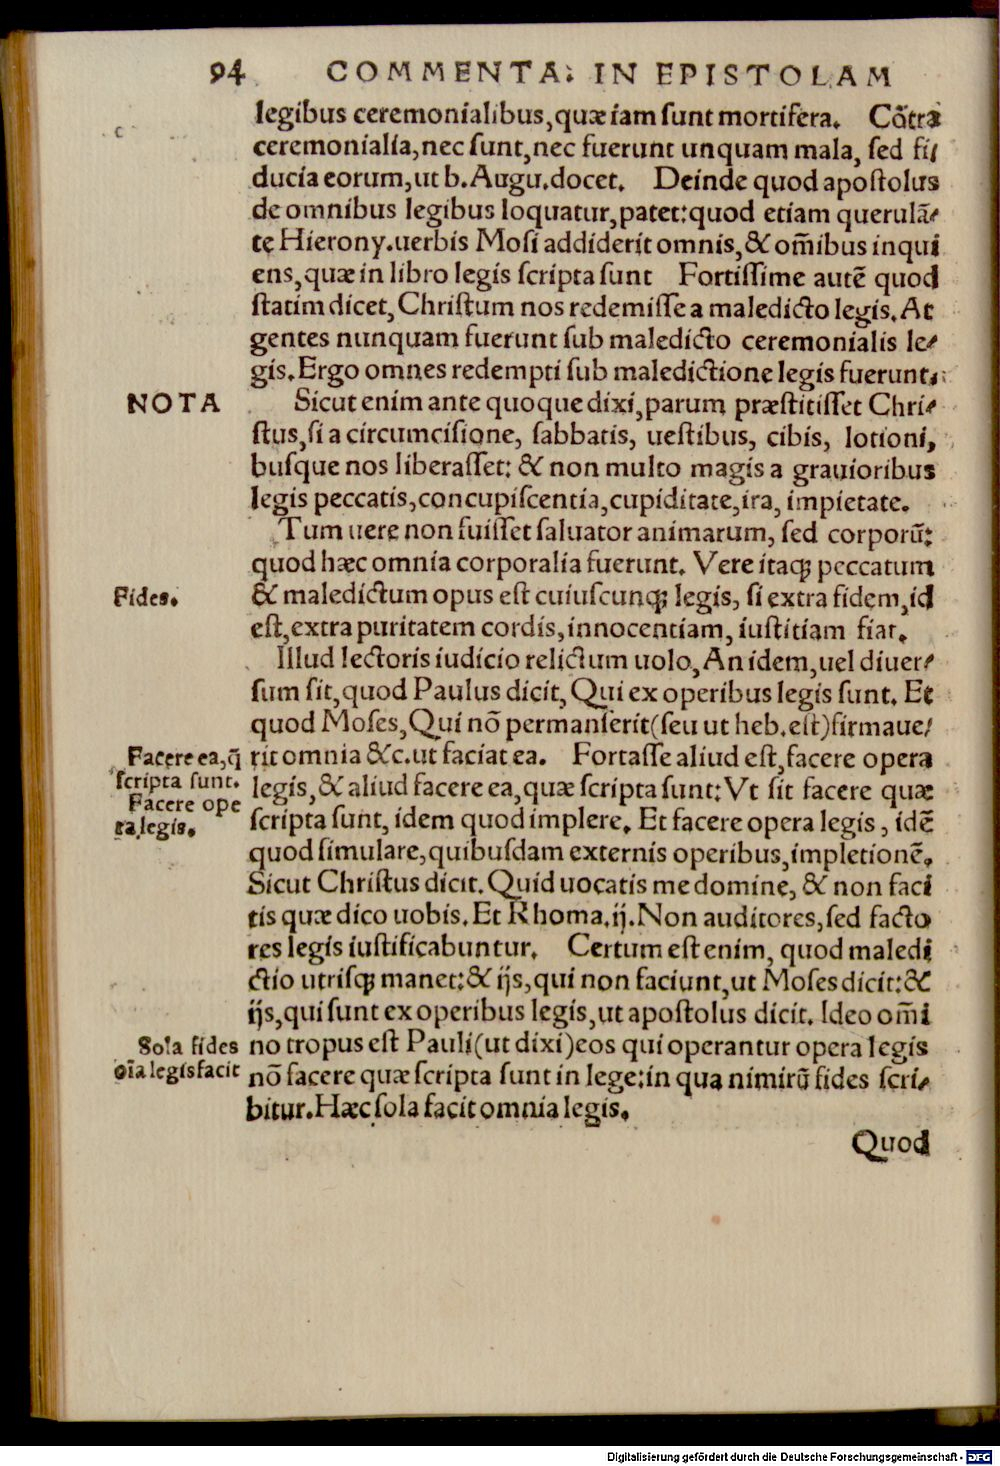 94 COMMENTA: IN EPISTOLAM
legibus ceremonialibus,quæ iam ſunt mortifera. Cõtra
ceremonialia,nec ſunt,nec fuerunt unquam mala, ſed fi/
ducia eorum,ut b.Augu.docet. Deinde quod apoſtolus
de omnibus legibus loquatur,patet:quod etiam querulã/
te Hierony.uerbis Moſi addiderit omnis,& om̃ibus inqui
ens,quæ in libro legis ſcripta ſunt Fortiſſime autẽ quod
ſtatim dicet,Chriſtum nos redemiſſe a maledicto legis.At
gentes nunquam fuerunt ſub maledicto ceremonialis le/
gis.Ergo omnes redempti ſub maledictione legis fuerunt.
NOTA
Sicut enim ante quoque dixi,parum præſtitiſſet Chri/
ſtus,ſi a circumciſione, ſabbatis, ueſtibus, cibis, lotioni,
buſque nos liberaſſet: & non multo magis a grauioribus
legis peccatis,concupiſcentia,cupiditate,ira, impietate.
Tum uere non fuiſſet ſaluator animarum, ſed corporũ:
quod hæc omnia corporalia fuerunt. Vere itaqꝫ peccatum
Fides.
& maledictum opus eſt cuiuſcunqꝫ legis, ſi extra fidem,id
eſt,extra puritatem cordis,innocentiam, iuſtitiam fiat.
Illud lectoris iudicio relictum uolo,An idem,uel diuer/
ſum ſit,quod Paulus dicit,Qui ex operibus legis ſunt. Et
quod Moſes,Qui nõ permanſerit(ſeu ut heb.eſt)firmaue/
Facere ea,q̃
ſcripta sunt.
Facere ope
ra legis.
rit omnia &c.ut faciat ea. Fortaſſe aliud eſt,facere opera
legis,& aliud facere ea,quæ ſcripta ſunt:Vt ſit facere quæ
ſcripta ſunt, idem quod implere. Et facere opera legis, idẽ
quod ſimulare,quibuſdam externis operibus,impletionẽ.
Sicut Chriſtus dicit.Quid uocatis me domine, & non faci
tis quæ dico uobis.Et Rhoma.ij.Non auditores,ſed facto
res legis iuſtificabuntur. Certum eſt enim, quod maledi
ctio utriſqꝫ manet:& ijs,qui non faciunt,ut Moſes dicit:&
ijs,qui ſunt ex operibus legis,ut apoſtolus dicit. Ideo om̃i
Sola fides
oĩa legis facit
no tropus eſt Pauli(ut dixi)eos qui operantur opera legis
nõ facere quæ ſcripta ſunt in lege:in qua nimirũ fides ſcri/
bitur.Hæc ſola facit omnia legis.
Quod
Digitalisierung gefördert durch die Deutsche Forschungsgemeinschaft - DFG